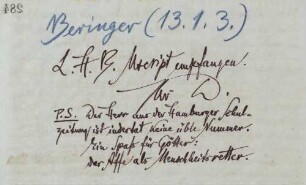 284
Beringer (13.1.3.)
L. H. B. Mscript empfangen.
Ihr D.
P.S. Der Herr aus der Hamburger Schul-
zeitung ist indertat keine üble Nummer.
Ein Spaß für Götter:
der Affe als Menschheitsretter.